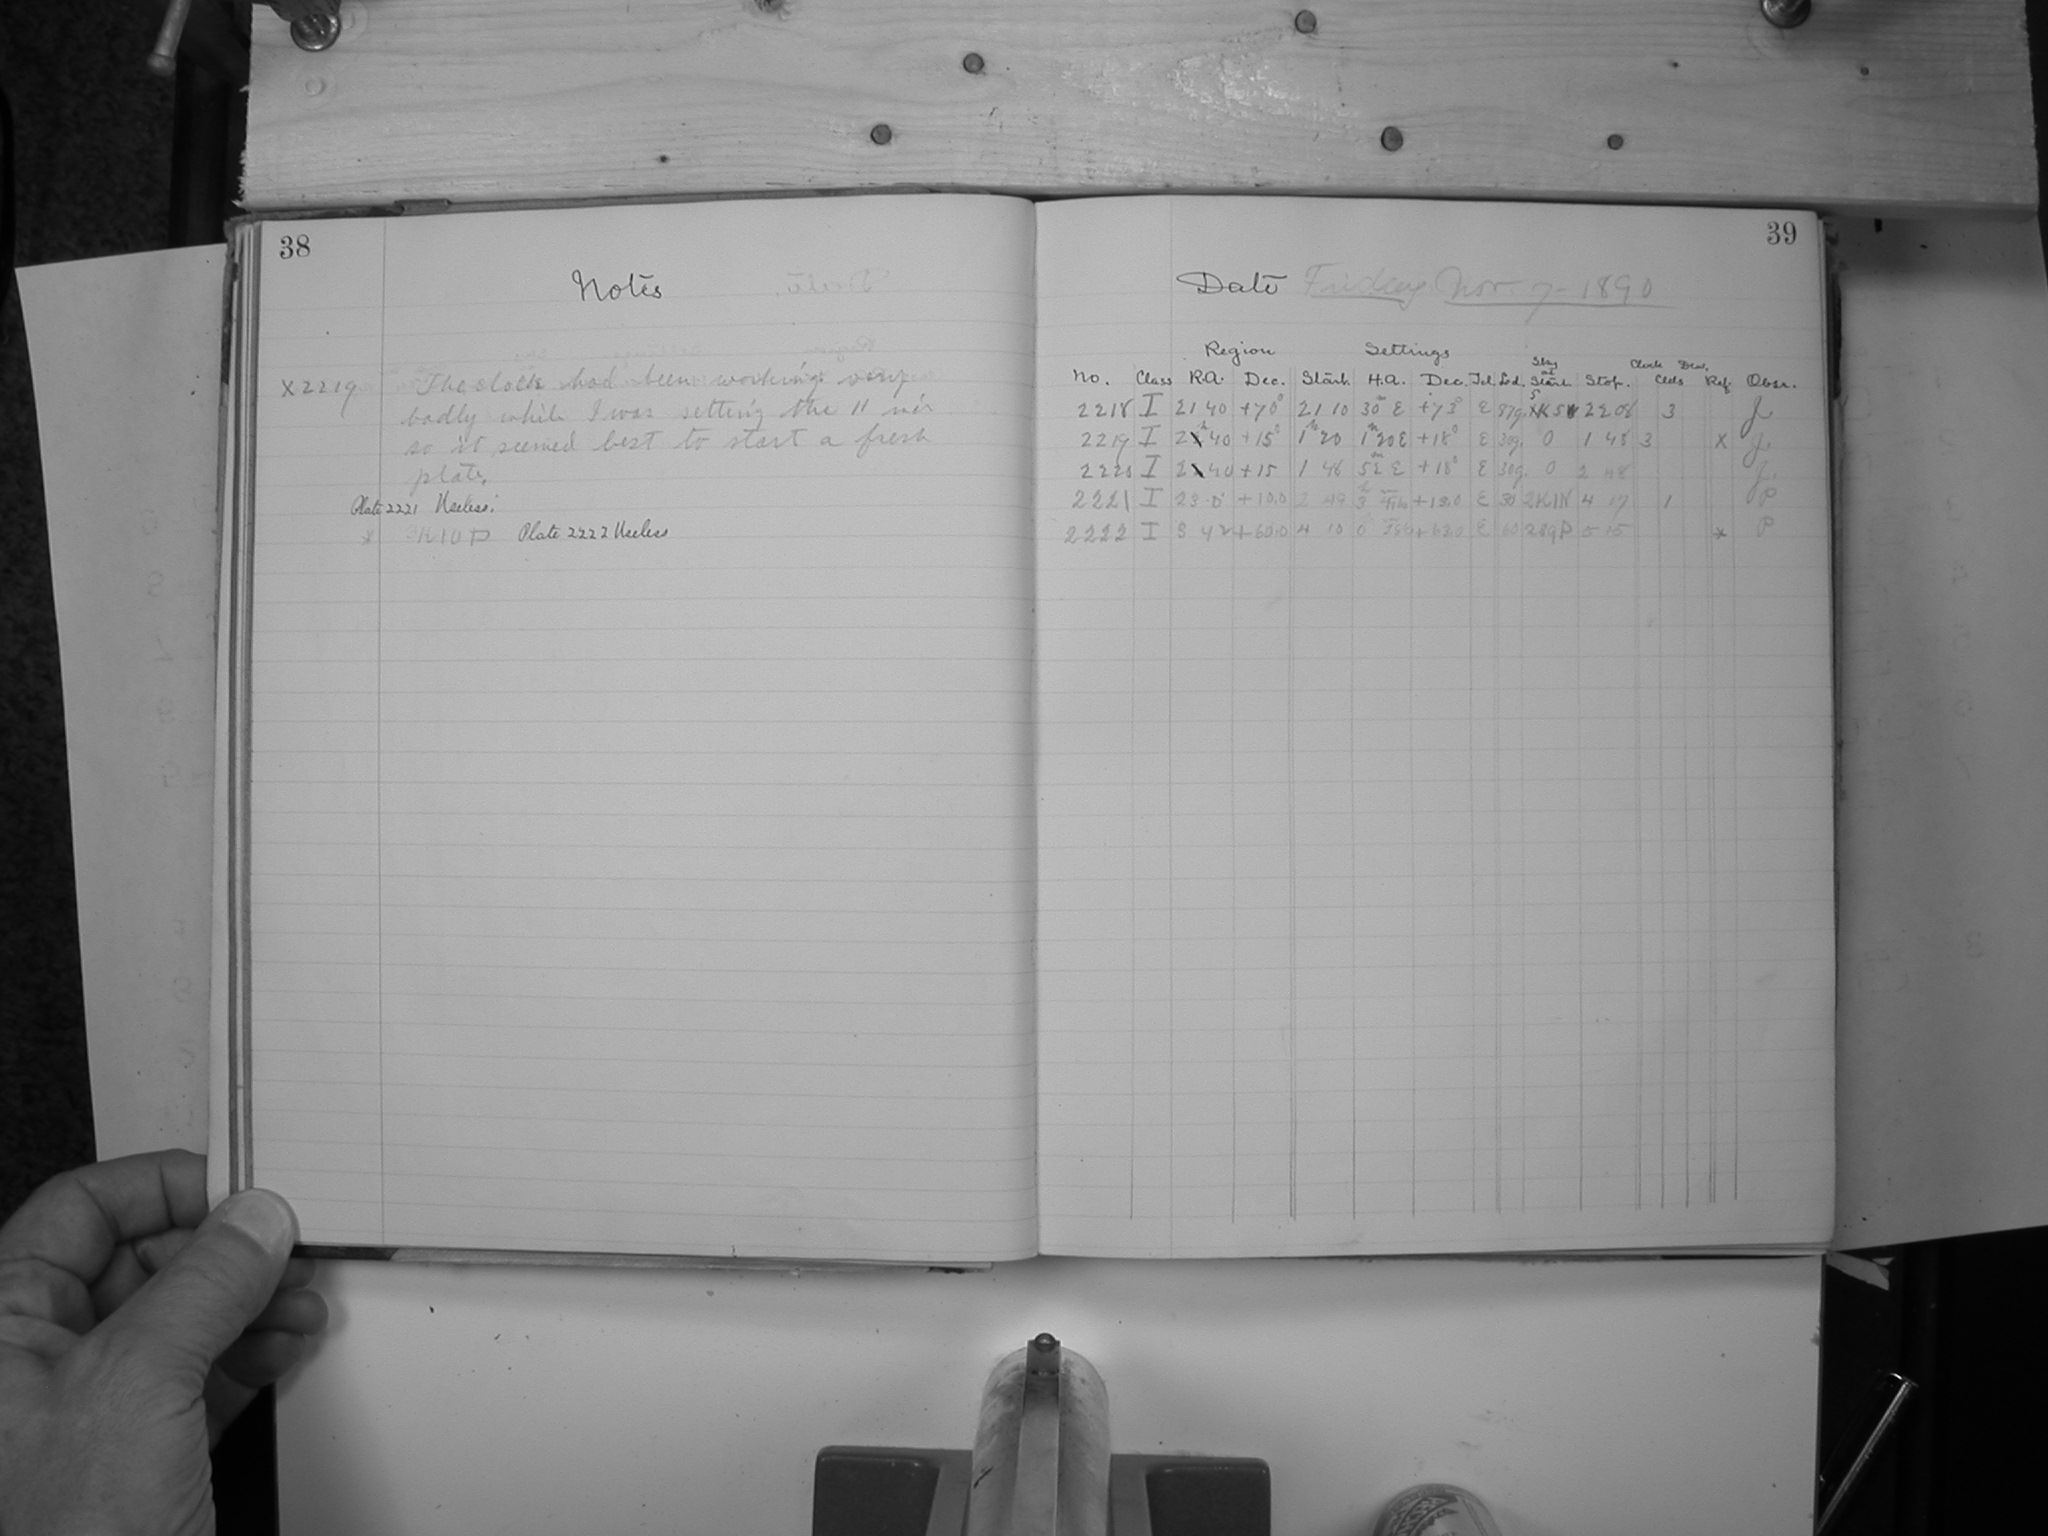 38
Notes
X 2219 The clock had been working very
badly while I was setting the 11 in
so it seemed best to start a fresh
plate.
Plate 2221 Useless.
* 3K10P Plate 2222 Useless
39
Date Friday Nov. 7 - 1890
Region Settings
No. Class R.A. Dec. Start. H.A. Dec. Tel. Sky at Start Stop. Clock Clds Dew. Ref. Obsr.
2218 I 21 40 +70° 21 10 30m E +73° E 87g 22 08 3 J.
2219 I 40 +15° 1h 20 1h 20 E +18° E 30g. 0 1 48 3 X J.
2220 I 40 +15 1 48 E +18° E 30g. 0 2 48 J.
2221 I 23 0 +10.0 2 49 +13.0 E 30 2K1N 4 17 1 P
2222 I 3 42 +60.0 4 10 0 +63.0 E 60 289P 5 15 * P